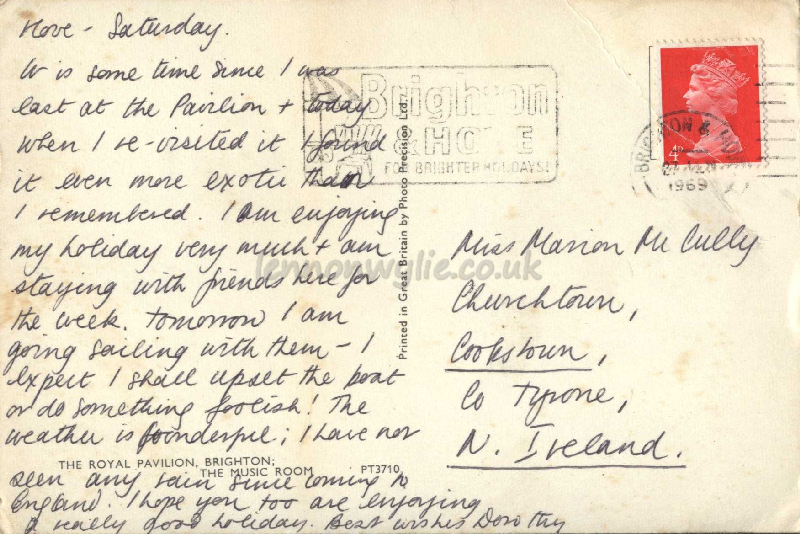 Hove - Saturday.
It is some time since I was
last at the Pavilion + today
when I re-visited it I found
it even more exotic than
I remembered. I am enjoying
my holiday very much + am
staying with friends here for
the week. Tomorrow I am
going sailing with them - I
expect I shall upset the boat
or do something foolish! The
weather is wonderful; I have not
seen any rain since coming to
England. I hope you too are enjoying
a really good holiday. Best wishes Dorothy
THE ROYAL PAVILION, BRIGHTON;
THE MUSIC ROOM PT3710
Printed in Great Britain by Photo Precision Ltd.
Brighton
& HOVE
FOR BRIGHTER HOLIDAYS!
BRIGHTON &
1969
4D
Miss Marion McCully
Churchtown,
Cookstown,
Co Tyrone,
N. Ireland.
lennonwylie.co.uk